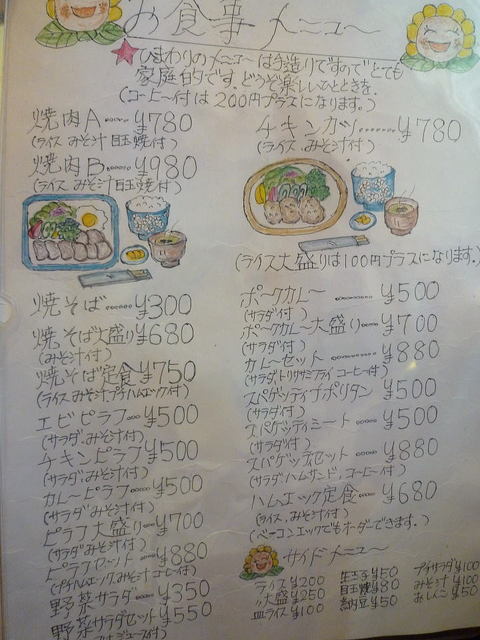 お食事メニュー
ひまわりのメニューは手造りですのでとても
家庭的です。どうぞ楽しいひとときを。
(コーヒー付は200円プラスになります。)
焼肉A……¥780
(ライス みそ汁 目玉焼付)
焼肉B……¥980
(ライス みそ汁 目玉焼付)
焼そば……¥300
焼そば大盛り¥680
(みそ汁付)
焼そば定食¥750
(ライス みそ汁 プチハムエッグ付)
エビピラフ…¥500
(サラダ、みそ汁付)
チキンピラフ¥500
(サラダ、みそ汁付)
カレーピラフ…¥500
(サラダ みそ汁付)
ピラフ大盛り…¥700
(サラダ みそ汁付)
ピラフセット…¥880
(プチハムエッグ、みそ汁 コーヒー付)
野菜サラダ…¥350
野菜サラダセット¥550
チキンカツ……¥780
(ライス、みそ汁付)
(ライス大盛りは100円プラスになります。)
ポークカレー……¥500
(サラダ付)
ポークカレー大盛り…¥700
(サラダ付)
カレーセット……¥880
(サラダ、トリササミフライ コーヒー付)
スパゲッティナポリタン ¥500
(サラダ付)
スパゲッティミート…¥500
(サラダ付)
スパゲッティセット…¥880
(サラダ、ハムサンド、コーヒー付)
ハムエッグ定食…¥680
(ライス、みそ汁付)
(ベーコンエッグでもオーダーできます。)
サイドメニュー
ライス ¥200
〃大盛 ¥250
皿ライス ¥100
生玉子 ¥50
目玉焼 ¥80
納豆 ¥50
プチサラダ ¥100
みそ汁 ¥100
おしんこ ¥50